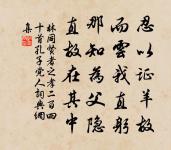 忍以证羊故
而雲我直躬
那知為父隐
直故在其中
林同贤者之孝二百四
十首孔子党人詞典網
集